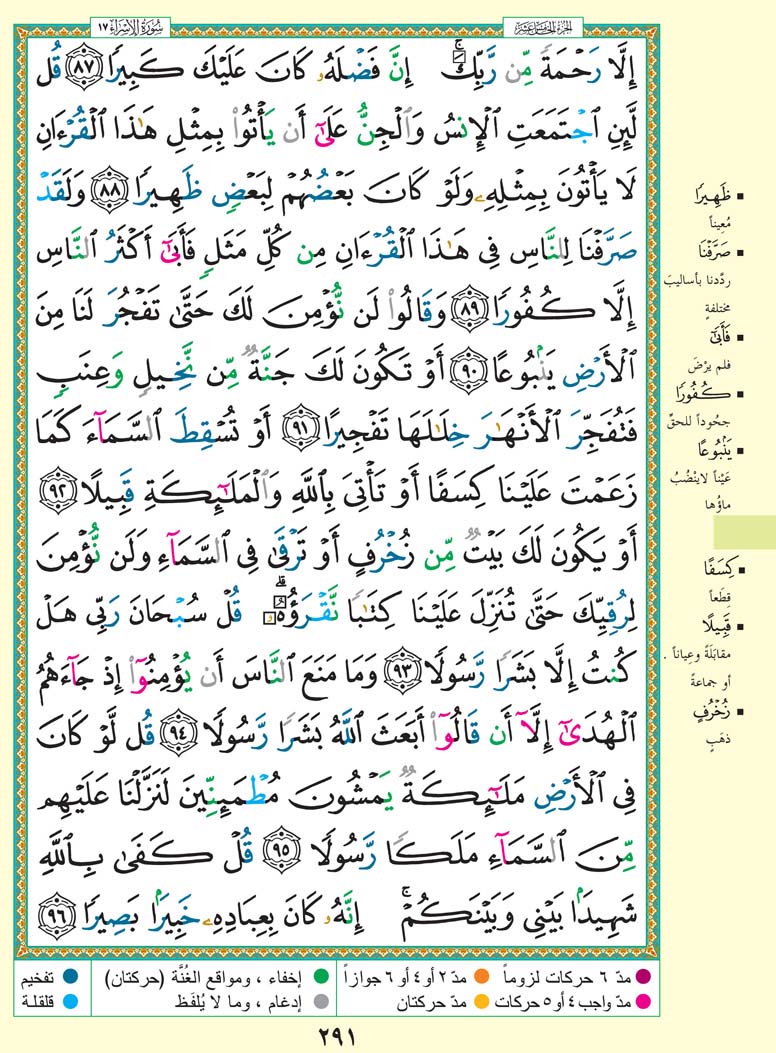 الجزء الخامس عشر
سورة الإسراء ١٧
إِلَّا رَحْمَةً مِّن رَّبِّكَ ۚ إِنَّ فَضْلَهُۥ كَانَ عَلَيْكَ كَبِيرًا ٨٧ قُل
لَّئِنِ ٱجْتَمَعَتِ ٱلْإِنسُ وَٱلْجِنُّ عَلَىٰٓ أَن يَأْتُوا۟ بِمِثْلِ هَٰذَا ٱلْقُرْءَانِ
لَا يَأْتُونَ بِمِثْلِهِۦ وَلَوْ كَانَ بَعْضُهُمْ لِبَعْضٍ ظَهِيرًا ٨٨ وَلَقَدْ
صَرَّفْنَا لِلنَّاسِ فِى هَٰذَا ٱلْقُرْءَانِ مِن كُلِّ مَثَلٍ فَأَبَىٰٓ أَكْثَرُ ٱلنَّاسِ
إِلَّا كُفُورًا ٨٩ وَقَالُوا۟ لَن نُّؤْمِنَ لَكَ حَتَّىٰ تَفْجُرَ لَنَا مِنَ
ٱلْأَرْضِ يَنۢبُوعًا ٩٠ أَوْ تَكُونَ لَكَ جَنَّةٌ مِّن نَّخِيلٍ وَعِنَبٍ
فَتُفَجِّرَ ٱلْأَنْهَٰرَ خِلَٰلَهَا تَفْجِيرًا ٩١ أَوْ تُسْقِطَ ٱلسَّمَآءَ كَمَا
زَعَمْتَ عَلَيْنَا كِسَفًا أَوْ تَأْتِىَ بِٱللَّهِ وَٱلْمَلَٰٓئِكَةِ قَبِيلًا ٩٢
أَوْ يَكُونَ لَكَ بَيْتٌ مِّن زُخْرُفٍ أَوْ تَرْقَىٰ فِى ٱلسَّمَآءِ وَلَن نُّؤْمِنَ
لِرُقِيِّكَ حَتَّىٰ تُنَزِّلَ عَلَيْنَا كِتَٰبًا نَّقْرَؤُهُۥ ۗ قُلْ سُبْحَانَ رَبِّى هَلْ
كُنتُ إِلَّا بَشَرًا رَّسُولًا ٩٣ وَمَا مَنَعَ ٱلنَّاسَ أَن يُؤْمِنُوٓا۟ إِذْ جَآءَهُمُ
ٱلْهُدَىٰٓ إِلَّآ أَن قَالُوٓا۟ أَبَعَثَ ٱللَّهُ بَشَرًا رَّسُولًا ٩٤ قُل لَّوْ كَانَ
فِى ٱلْأَرْضِ مَلَٰٓئِكَةٌ يَمْشُونَ مُطْمَئِنِّينَ لَنَزَّلْنَا عَلَيْهِم
مِّنَ ٱلسَّمَآءِ مَلَكًا رَّسُولًا ٩٥ قُلْ كَفَىٰ بِٱللَّهِ
شَهِيدًۢا بَيْنِى وَبَيْنَكُمْ ۚ إِنَّهُۥ كَانَ بِعِبَادِهِۦ خَبِيرًۢا بَصِيرًا ٩٦
ظَهِيرًا
مُعيناً
صَرَّفْنَا
ردَّدنا بأساليبَ
مختلفةٍ
فَأَبَىٰٓ
فلم يرْضَ
كُفُورًا
جحُوداً للحقِّ
يَنۢبُوعًا
عَيْناً لاينْضُبُ
ماؤُها
كِسَفًا
قطَعاً
قَبِيلًا
مقابَلَةً وعِياناً .
أو جماعةً
زُخْرُفٍ
ذهَبٍ
مدّ ٦ حركات لزوماً مدّ ٢ أو ٤ أو ٦ جوازاً إخفاء ، ومواقع الغُنَّة (حركتان) تفخيم
مدّ واجب ٤ أو ٥ حركات مدّ حركتان إدغام ، وما لا يُلفَظ قلقلـة
٢٩١